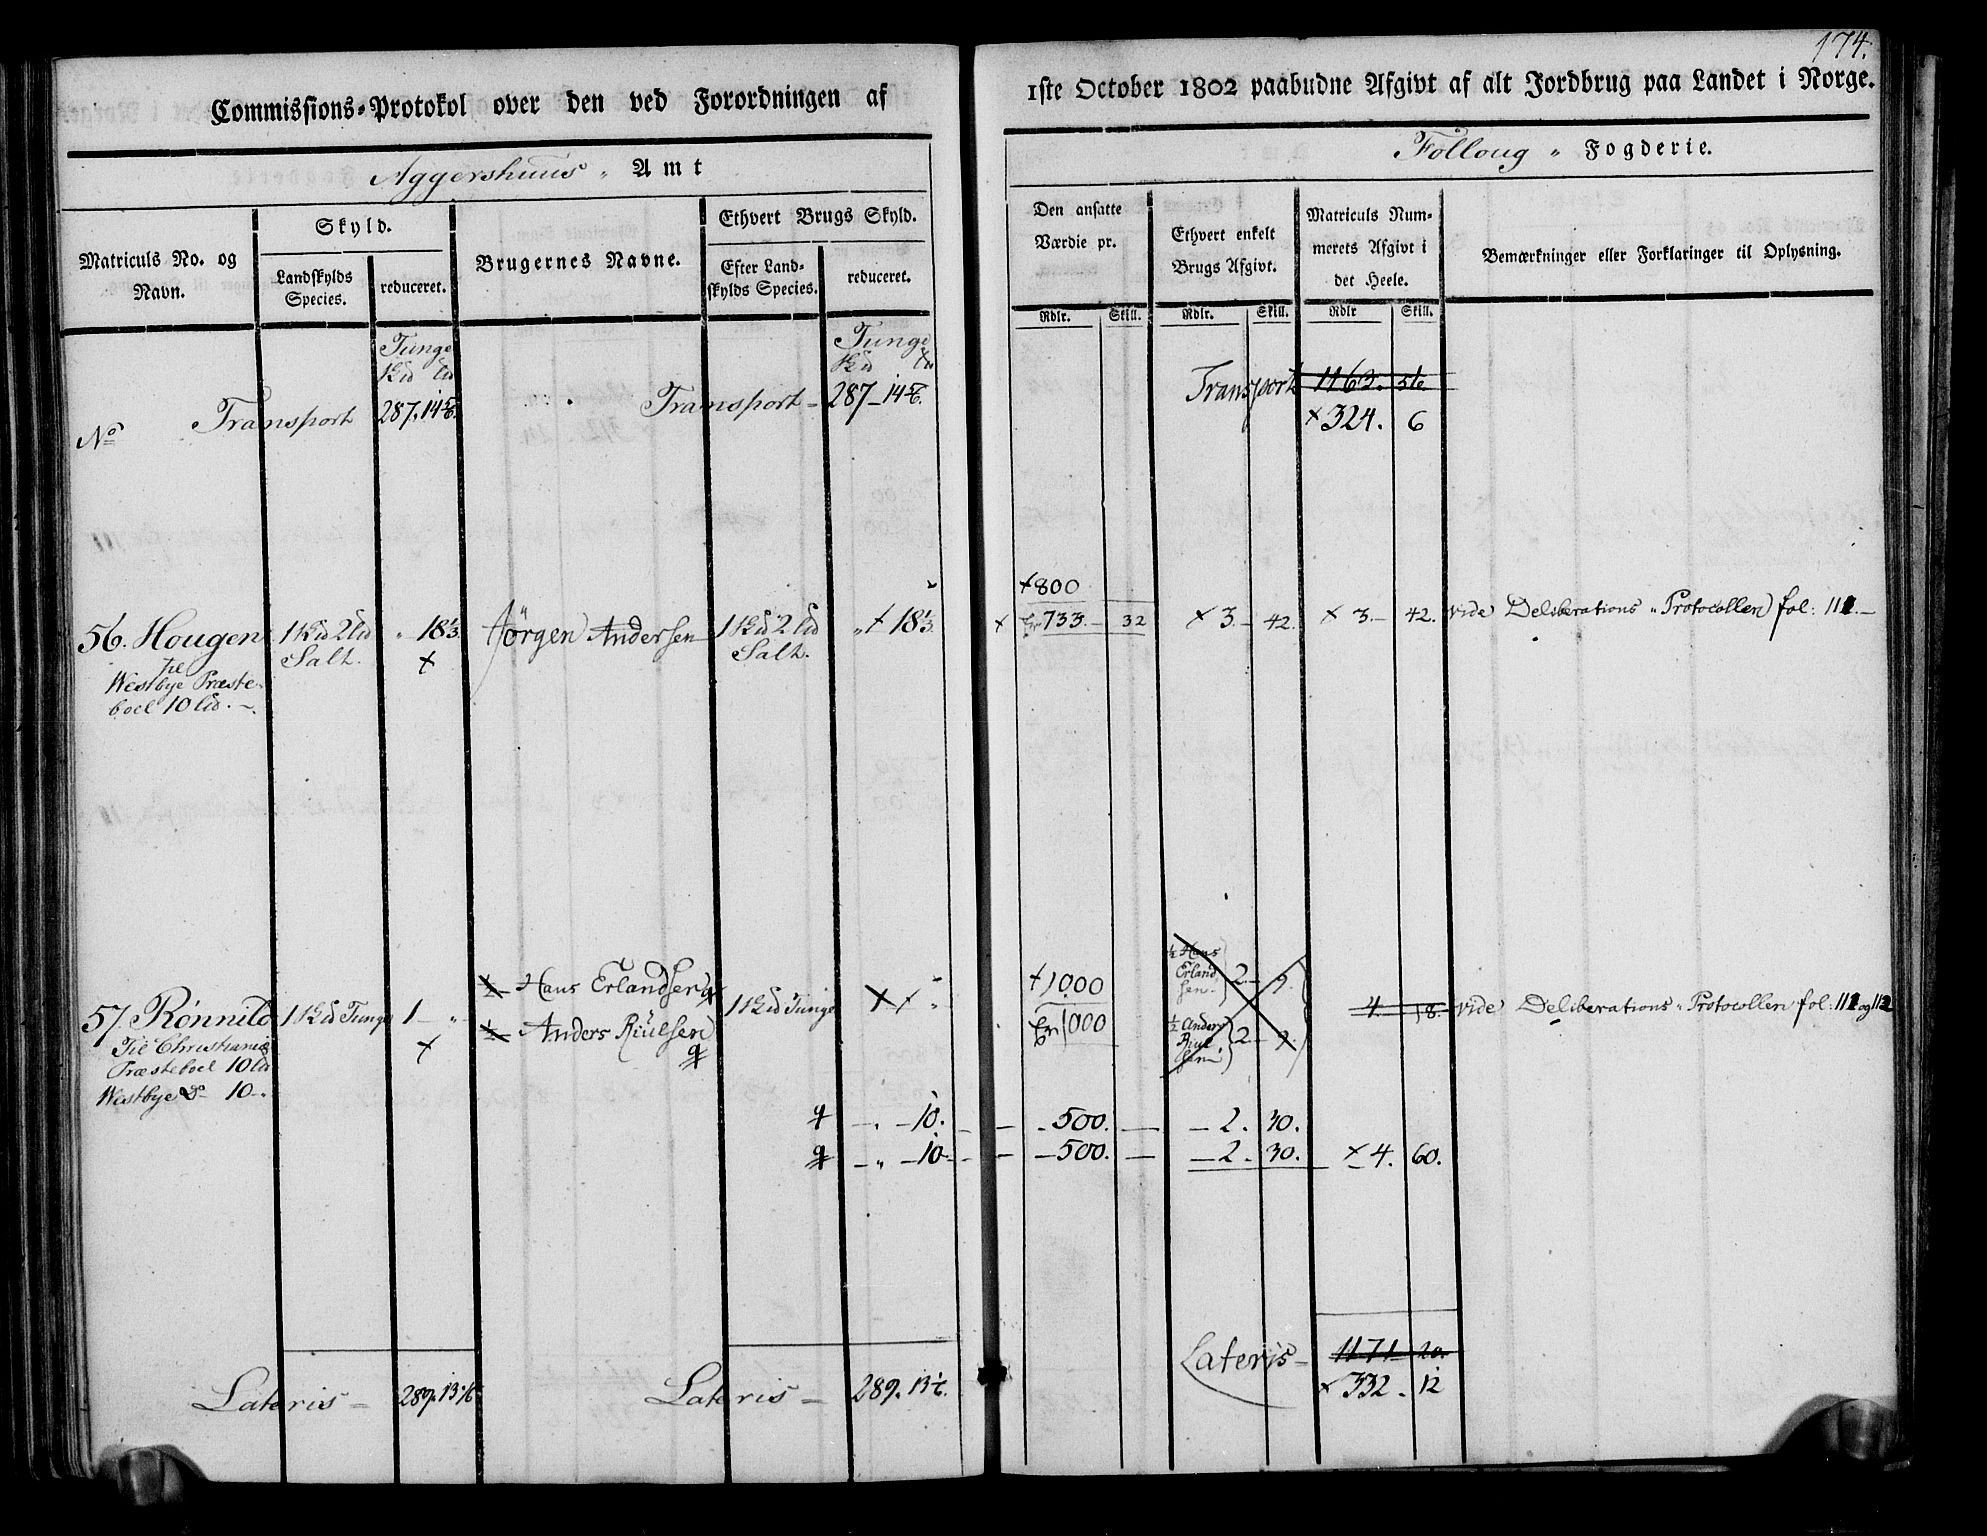 174.
Commissions-Protokol over den ved Forordningen af
1ste October 1802 paabudne Afgivt af alt Jordbrug paa Landet i Norge.
Aggershuus „ Amt
Folloug „ Fogderie.
Matriculs No. og Navn.
Skyld.
Landskylds Species.
reduceret.
Brugernes Navne.
Ethvert Brugs Skyld.
Efter Landskylds Species.
reduceret.
Den ansatte Værdie pr.
Ethvert enkelt Brugs Afgivt.
Matriculs Nummerets Afgivt i det Heele.
Bemærkninger eller Forklaringer til Oplysning.
Rdlr. Skill. Rdlr. Skill. Rdlr Skill.
Tunge
Tunge
No Transport 287. 14 5/6. Transport – 287 – 14 5/6. Transport 1163. 56
× 324. 6
+800
56. Hougen 1 Hud 2 lid „ 18 1/3 Jörgen Andersen 1 Hud 2 lid „ + 18 1/3. × 733. – 32 × 3. – 42. × 3. – 42. vide Deliberations „ Protocollen fol: 111. –
Salt. × Salt.
til
Westbye Præste-
boel 10 lid. –.
1/2 Hans Erlandsen +1000 1/2 Hans Erlandsen. 2 – 9.
57. Rönnild 1 Hud Tunge 1 – „ 1 Hud Tunge × + „ 4. 18. vide Deliberations „ Protocollen fol: 111 og 112
1/2 Anders Riulsen 1000 1/2 Anders Riulsen 2 – 9.
Til Christiania ×
Præsteboel 10 lid
Westbye do 10 –.
– „ – 10. – 500. – – 2. 30.
– „ – 10 – 500. – – 2 – 30. × 4. 60.
Lateris – 289. 13 1/6 Lateris – 289. 13 1/6. Lateris – 1171 20.
× 332. 12